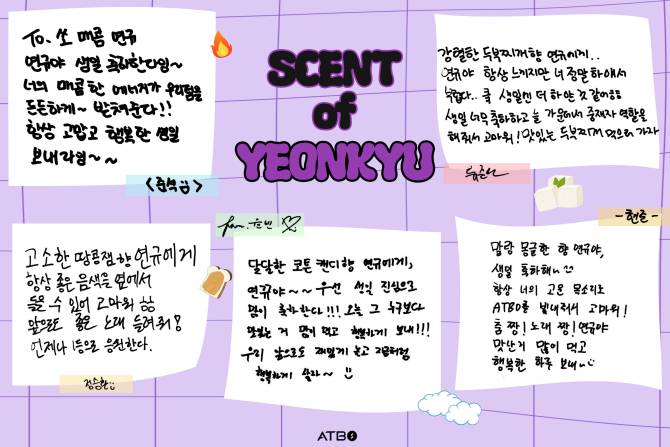 SCENT
of
YEONKYU
To. 쏘 매콤 연규
연규야 생일 축하한다잉~
너의 매콤한 에너지가 우리팀을
든든하게~ 받쳐준다!!
항상 고맙고 행복한 생일
보내라잉~~
<준석>
강렬한 두부찌개향 연규에게..
연규야 항상 느끼지만 너 정말 하얘서
부럽다.. 큭 생일엔 더 하얀 것 같아ㅎㅎ
생일 너무 축하하고 늘 가운데서 중재자 역할을
해줘서 고마워! 맛있는 두부찌개 먹으러 가자
고소한 땅콩잼향 연규에게
항상 좋은 음색을 옆에서
들을 수 있어 고마워 ㅎㅎ
앞으로도 좋은 노래 들려줘!
언제나 1등으로 응원한다.
정승환
from. 원빈
달달한 코튼 캔디향 연규에게,
연규야~~ 우선 생일 진심으로
많이 축하한다!!! 오늘 그 누구보다
맛있는 거 많이 먹고 행복하게 보내!!!
우리 앞으로도 재밌게 놀고 지금처럼
행복하게 살자~
-현준-
말랑 몽글한 향 연규야,
생일 축하해~
항상 너의 고운 목소리로
ATBO를 빛내줘서 고마워!
춤 짱! 노래 짱! 연규야
맛난거 많이 먹고
행복한 하루 보내~
ATBO